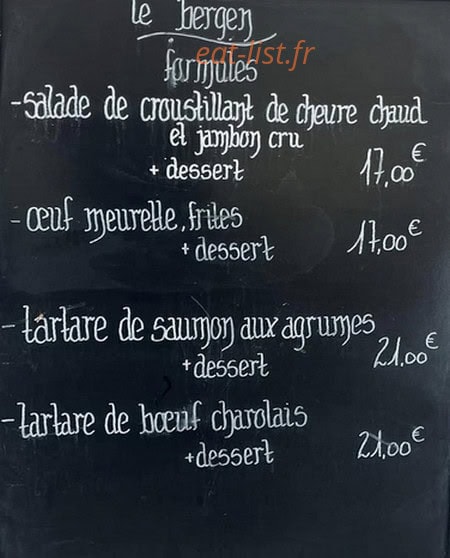 le bergen
eat-list.fr
formules
-salade de croustillant de chevre chaud
et jambon cru
+ dessert 17,00€
- œuf meurette, frites
+ dessert 17,00€
- tartare de saumon aux agrumes
+ dessert 21,00€
- tartare de bœuf charolais
+ dessert 21,00€